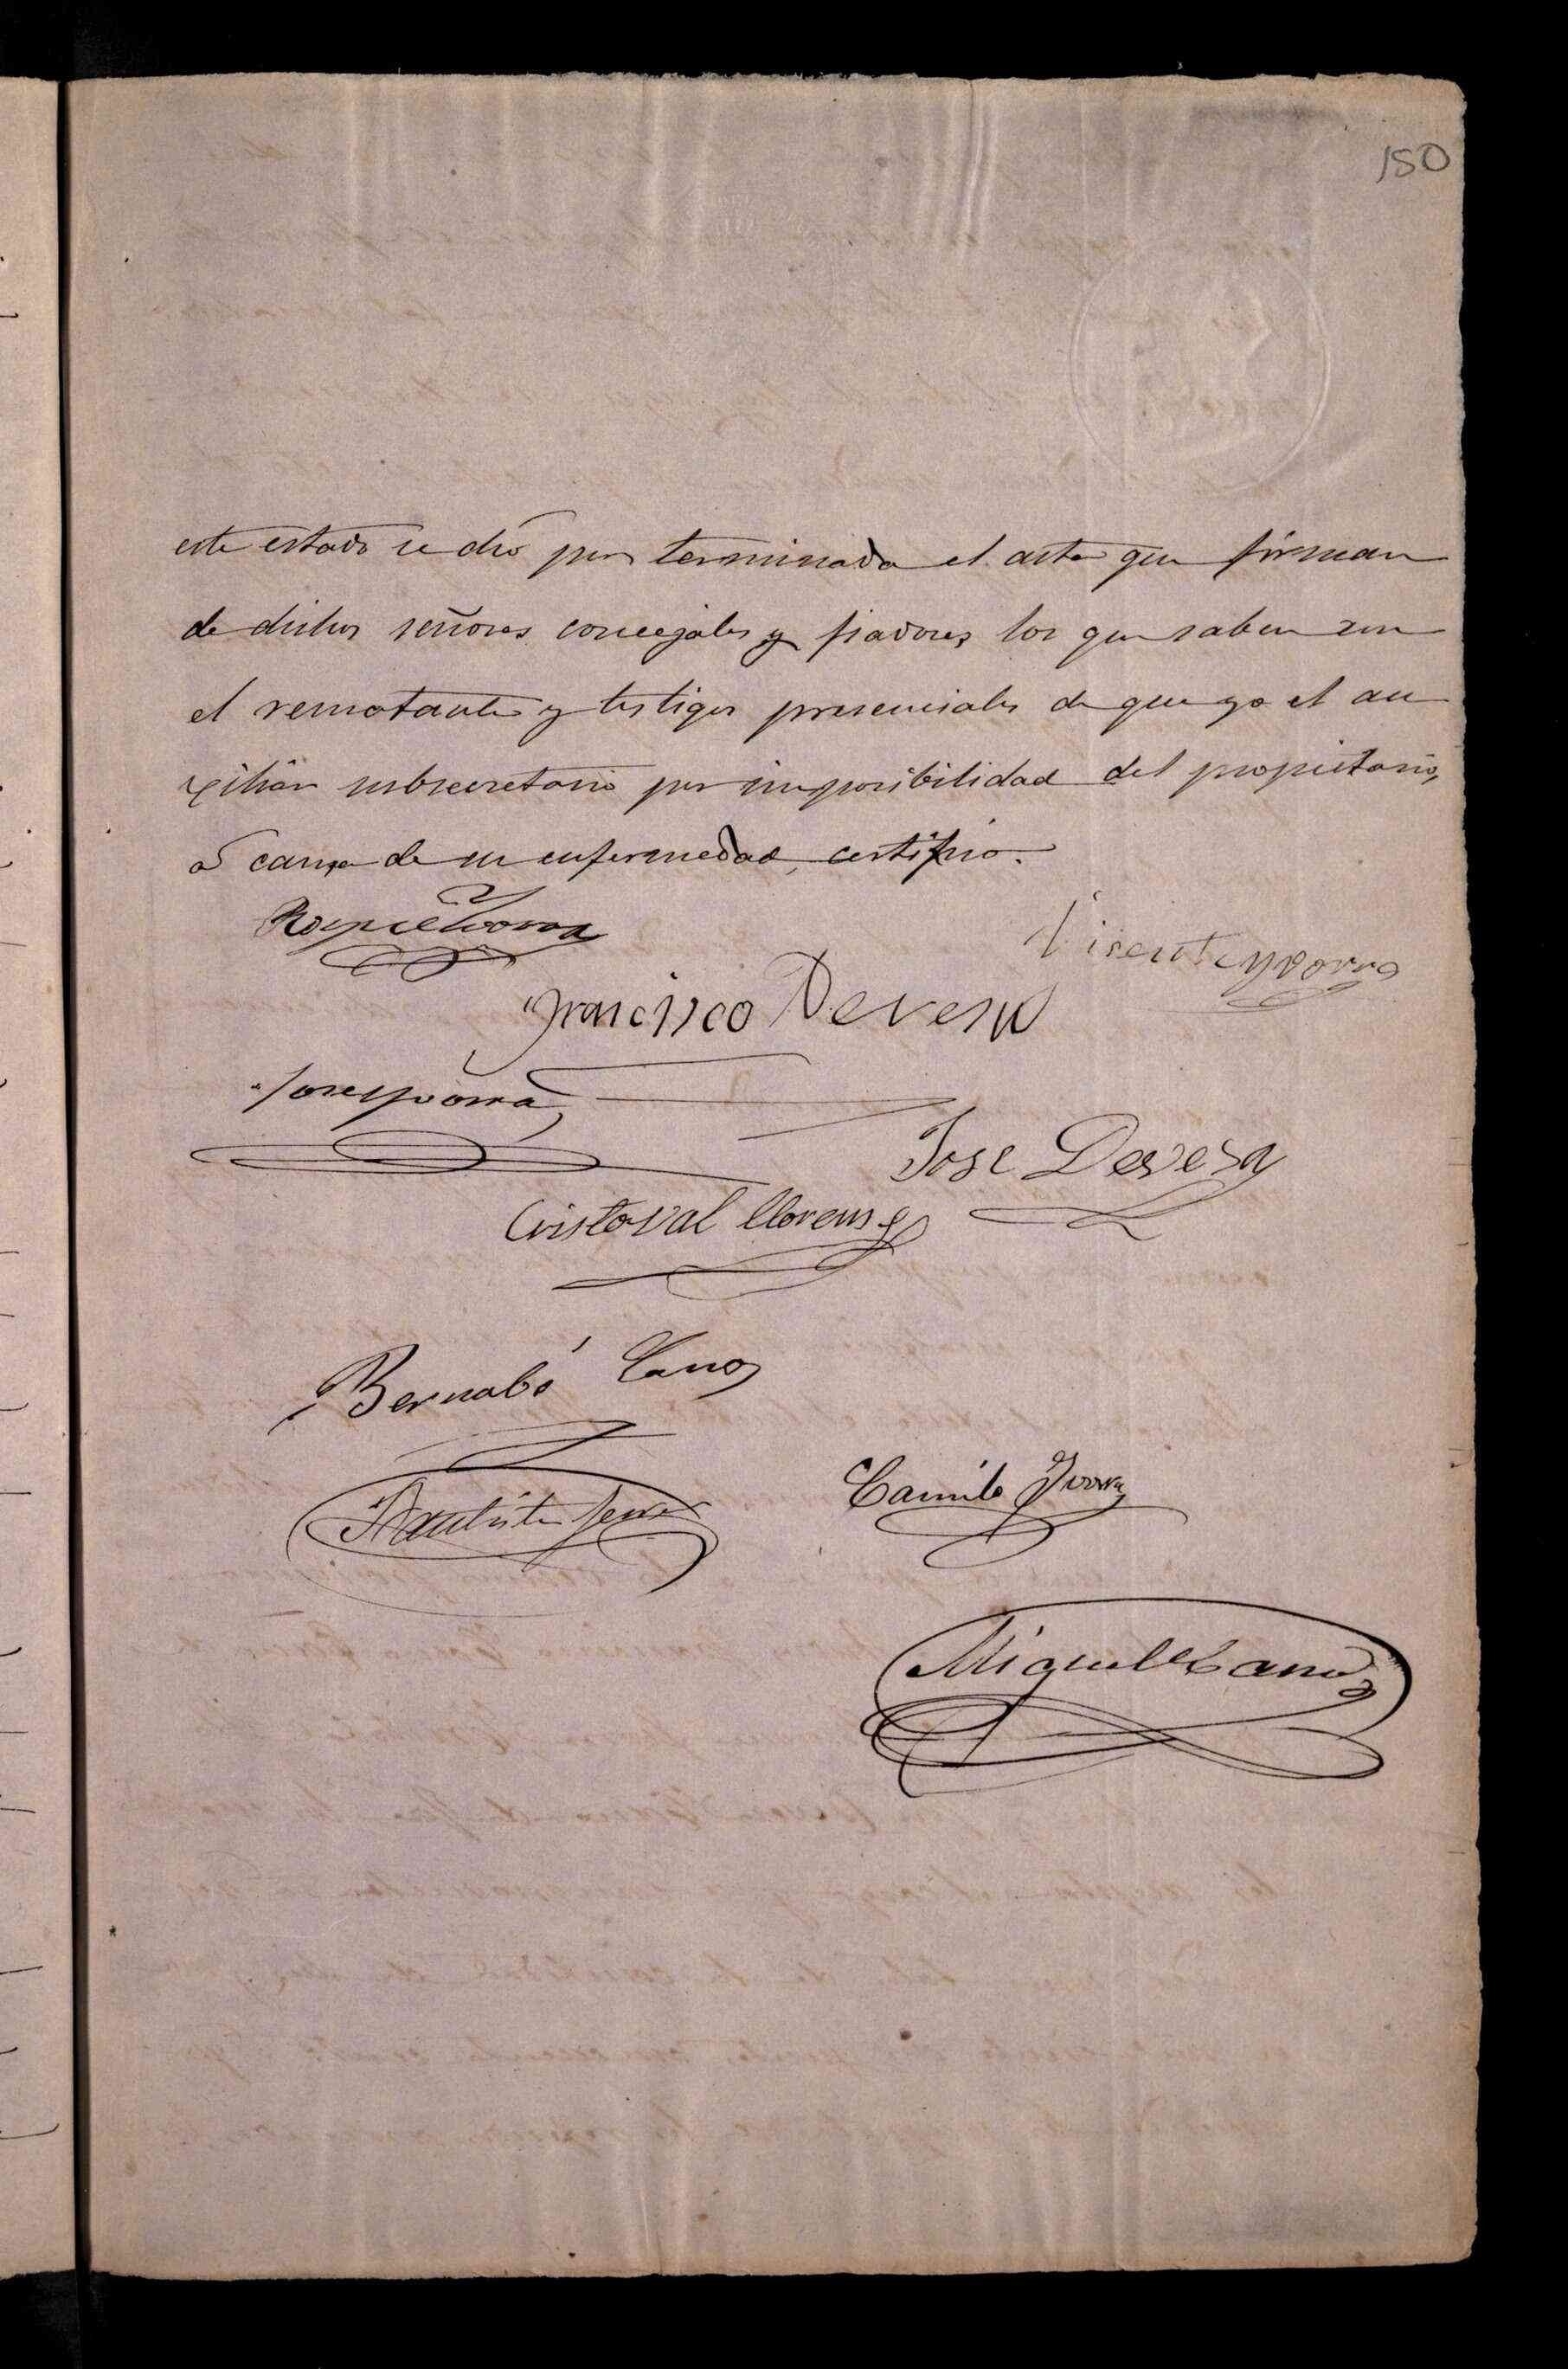 150
este estado se dió por terminada el acta que firman
de dichos señores concejales y fiadores los que saben con
el rematante y testigos presenciales de que yo el au
xiliar subsecretario por imposibilidad del propietario,
á causa de su enfermedad, certifico.
Vicente Yvorra
Francisco Devesa
Jose Yvorra
Jose Devesa
Cristoval Llorens
Bernabé Cano
Camilo Yvorra
Bautista
Miguel Cano